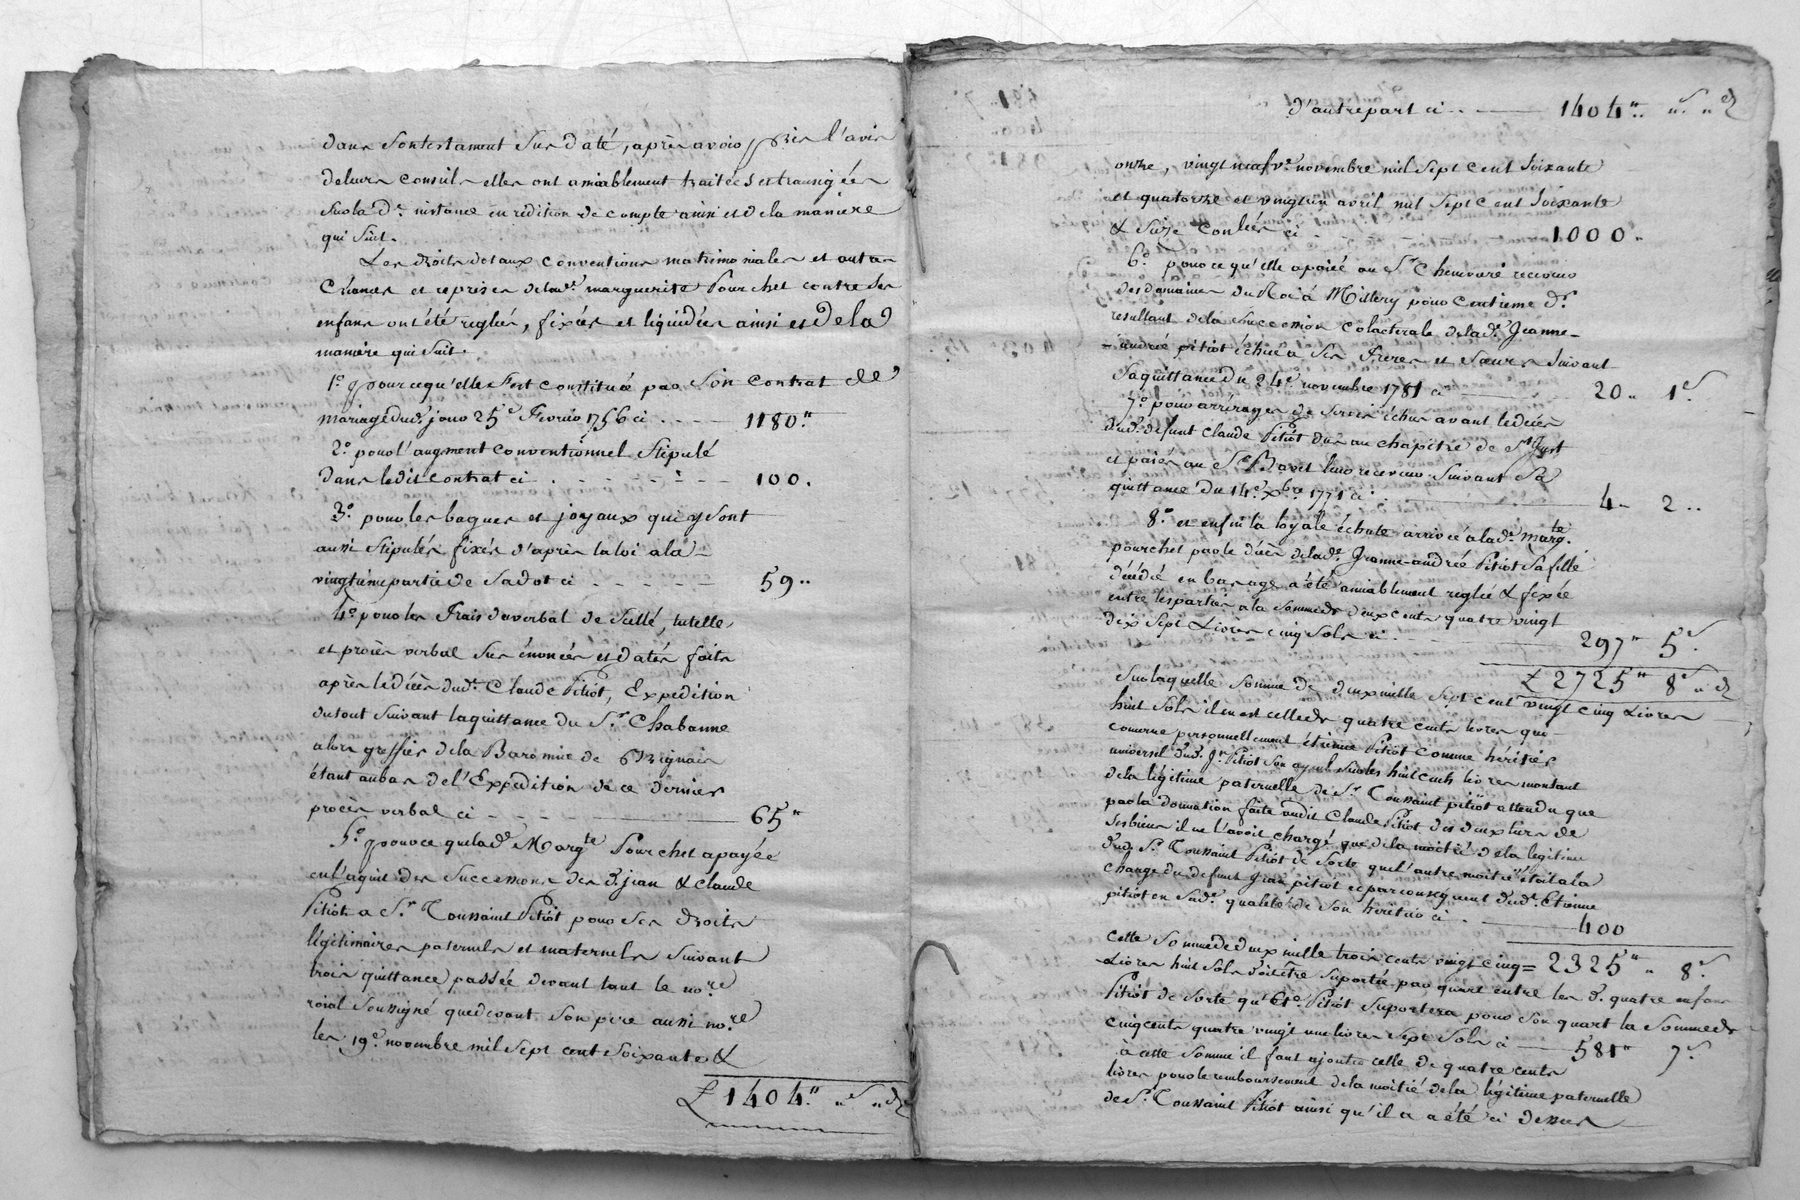 dans son testament sus daté, après avoir pris l'avis
de leurs conseils elles ont amiablement traitées et transigées
sur la d.e instance en rédition de compte ainsi et de la manière
qui suit.
Les droits dotaux conventions matrimoniales et autres
créances et reprises de lad.e marguerite Pourchet contre ses
enfans ont été reglées, fixées et liquidées ainsi et de la
manière qui suit.
1.o pour ce qu'elle s'est constituée par son contrat de
mariage dud. jour 25.e Fevrier 1756 ci . . . — 1180.''
2.o pour l'augment conventionnel stipulé
dans ledit contrat ci . . . . . — 100.
3.o pour les bagues et joyaux qui y sont
aussi stipulés fixés d'après la loi a la
vingtième partie de sa dot ci . . . . . 59..
4.o pour les Frais du verbal de scellé, tutelle
et procès verbal sus énoncés et datés faits
après le décès dud. Claude Pitiot, Expedition
du tout suivant la quittance du S.r Chabanne
alors greffier de la Baronnie de Brignais
étant au bas de l'Expedition de ce dernier
procès verbal ci . . . — 65''
5.o pour ce que lad.e Marg.te Pourchet a payée
en l'aquit des successions des d. jean & claude
Pitiot a S.r Toussaint Pitiot pour ses droits
légitimaires paternels et maternels suivant
trois quittance passée devant tant le no.re
roial soussigné que devant son pere aussi no.re
les 19.e novembre mil sept cent soixante &
£ 1404.'' ..s ..d
d'autre part ci . . — 1404.. ..s ..d
onze, vingt neuf v.e novembre mil sept cent soixante
et quatorze et vingt un avril mil sept cent soixante
& seize ci . — 1000..
6.o pour ce qu'elle a paiée au S.r receveur
des domaines du Roi à Millery pour centieme d.
resultant de la succession colacterale de la d.e Jeanne-
-andrée pitiot échue a ses Freres et sœurs suivant
sa quittance du 24.e novembre 1781 ci — 20.. 1.s
7.o pour arrérages de servis échus avant le décès
dud. defunt claude Pitiot dus au chapitre de S.t Just
et paiés au S.r leur receveur suivant sa
quittance du 14.e Xbre 1771 ci — 4.. 2..
8.o et enfin la loyale échute arrivée à lad.e Marg.te
pourchet par le décès de lad.e Jeanne-andrée Pitiot sa fille
décédée en bas age a été amiablement reglée & fixée
entre les parties a la somme de deux cents quatre vingt
dix sept Livres cinq sols ci . . . — 297'' 5.s
£ 2725'' 8.s ..d
Sur laquelle somme de deux mille sept cent vingt cinq Livres
huit sols il en est celle de quatre cents livres qui
concerne personnellement étienne Pitiot comme héritier
universel dud. Jn Pitiot son ayeul sur les huit cents livres montant
de la légitime paternelle de S.r Toussaint pitiot attendu que
par la donnation faite audit Claude Pitiot des deux tiers de
ses biens il ne l'avoit chargé que de la moitié de la légitime
dud. S.r Toussaint Pitiot de sorte que l'autre moitié étoit a la
charge du defunt Jean pitiot et par consequent dud. Etienne
pitiot en sud.e qualité de son heritier ci . — 400
Cette somme de deux mille trois cents vingt cinq = 2325'' .. 8.s
Livres huit sols doit être suportée par quart entre les d. quatre enfans
Pitiot de sorte qu' Et.e Pitiot suportera pour son quart la somme de
cinq cents quatre vingt une livres sept sols ci — 581'' 7.s
à cette somme il faut ajouter celle de quatre cents
livres pour le remboursement de la moitié de la légitime paternelle
de S.r Toussaint Pitiot ainsi qu'il a été ci dessus